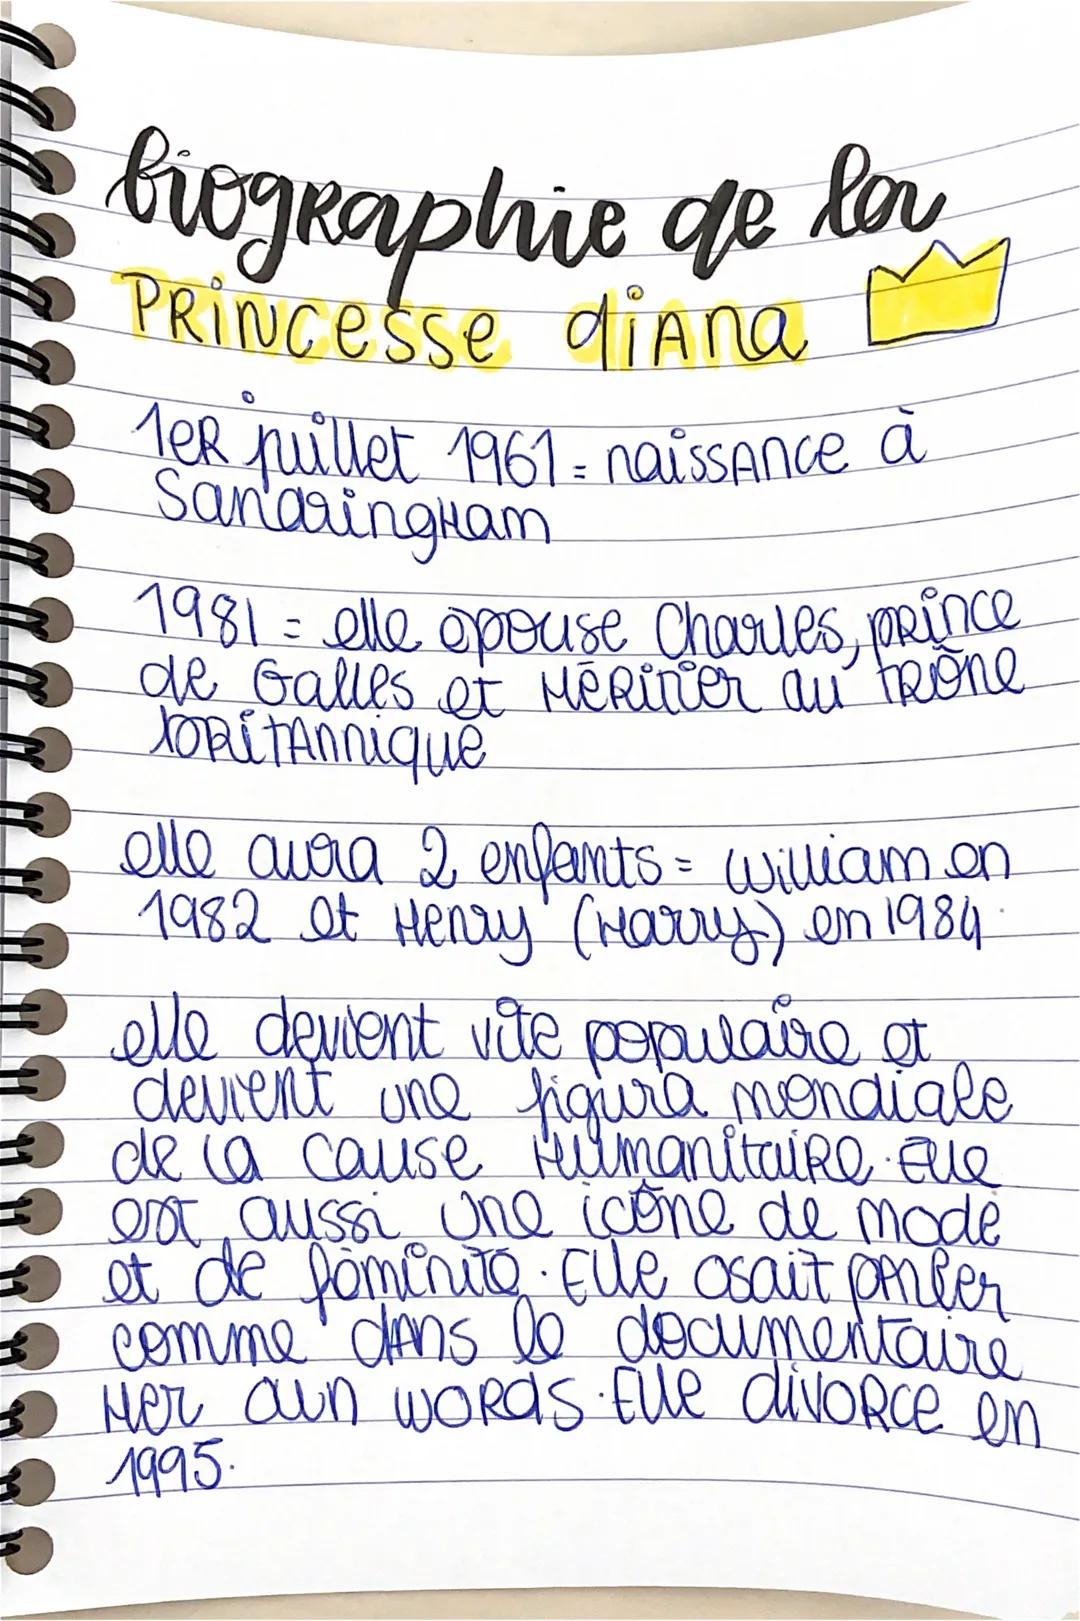 biographie de la
PRINCesse diAna
1eR juillet 1961 = naissAnce à
SandringHam
1981 = elle épouse Charles, pRince
de Galles et HéRitier au tRône
bRitAnnique
elle aura 2 enfants = william en
1982 et Henry (Harry) en 1984.
elle devient vite populaire et
devient une figura mondiale
de la cause HumanitaiRe. Elle
est aussi une icône de mode
et de féminité. Elle osait pArler
comme dAns le documentaire
Her own woRds. Elle divoRce en
1995.